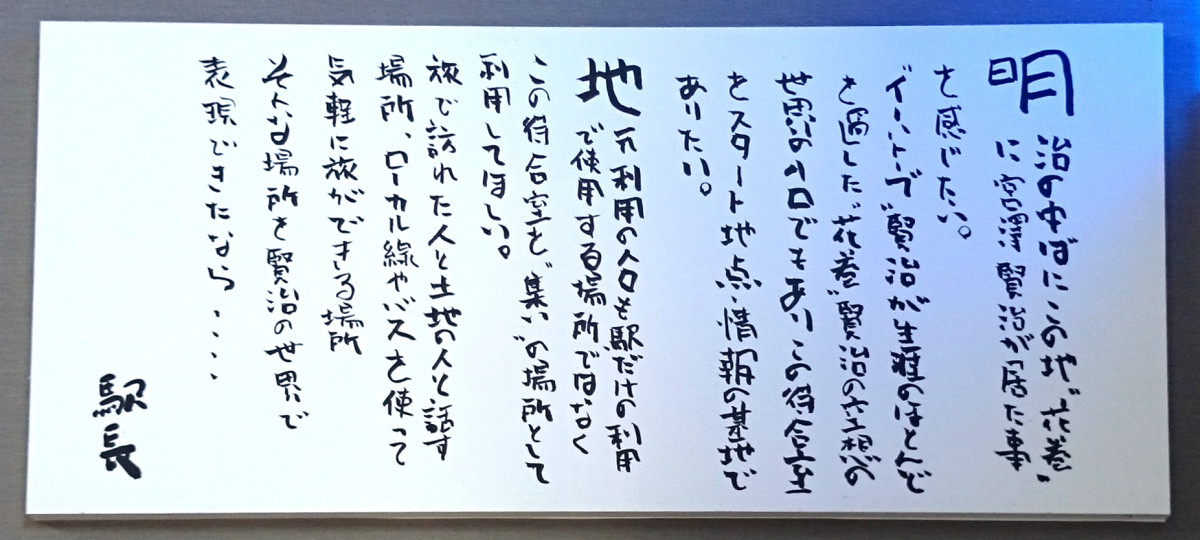 明治の中ばにこの地"花巻"
に宮澤賢治が居た事
を感じたい。
"イーハトーブ"賢治が生涯のほとんど
を過した"花巻"賢治の空想の
世界の入口でもありこの待合室
をスタート地点・情報の基地で
ありたい。
地元利用の人々も駅だけの利用
で使用する場所ではなく
この待合室を"集い"の場所として
利用してほしい。
旅で訪れた人と土地の人と話す
場所、ローカル線やバスを使って
気軽に旅ができる場所
そんな場所を賢治の世界で
表現できたなら・・・・
駅長